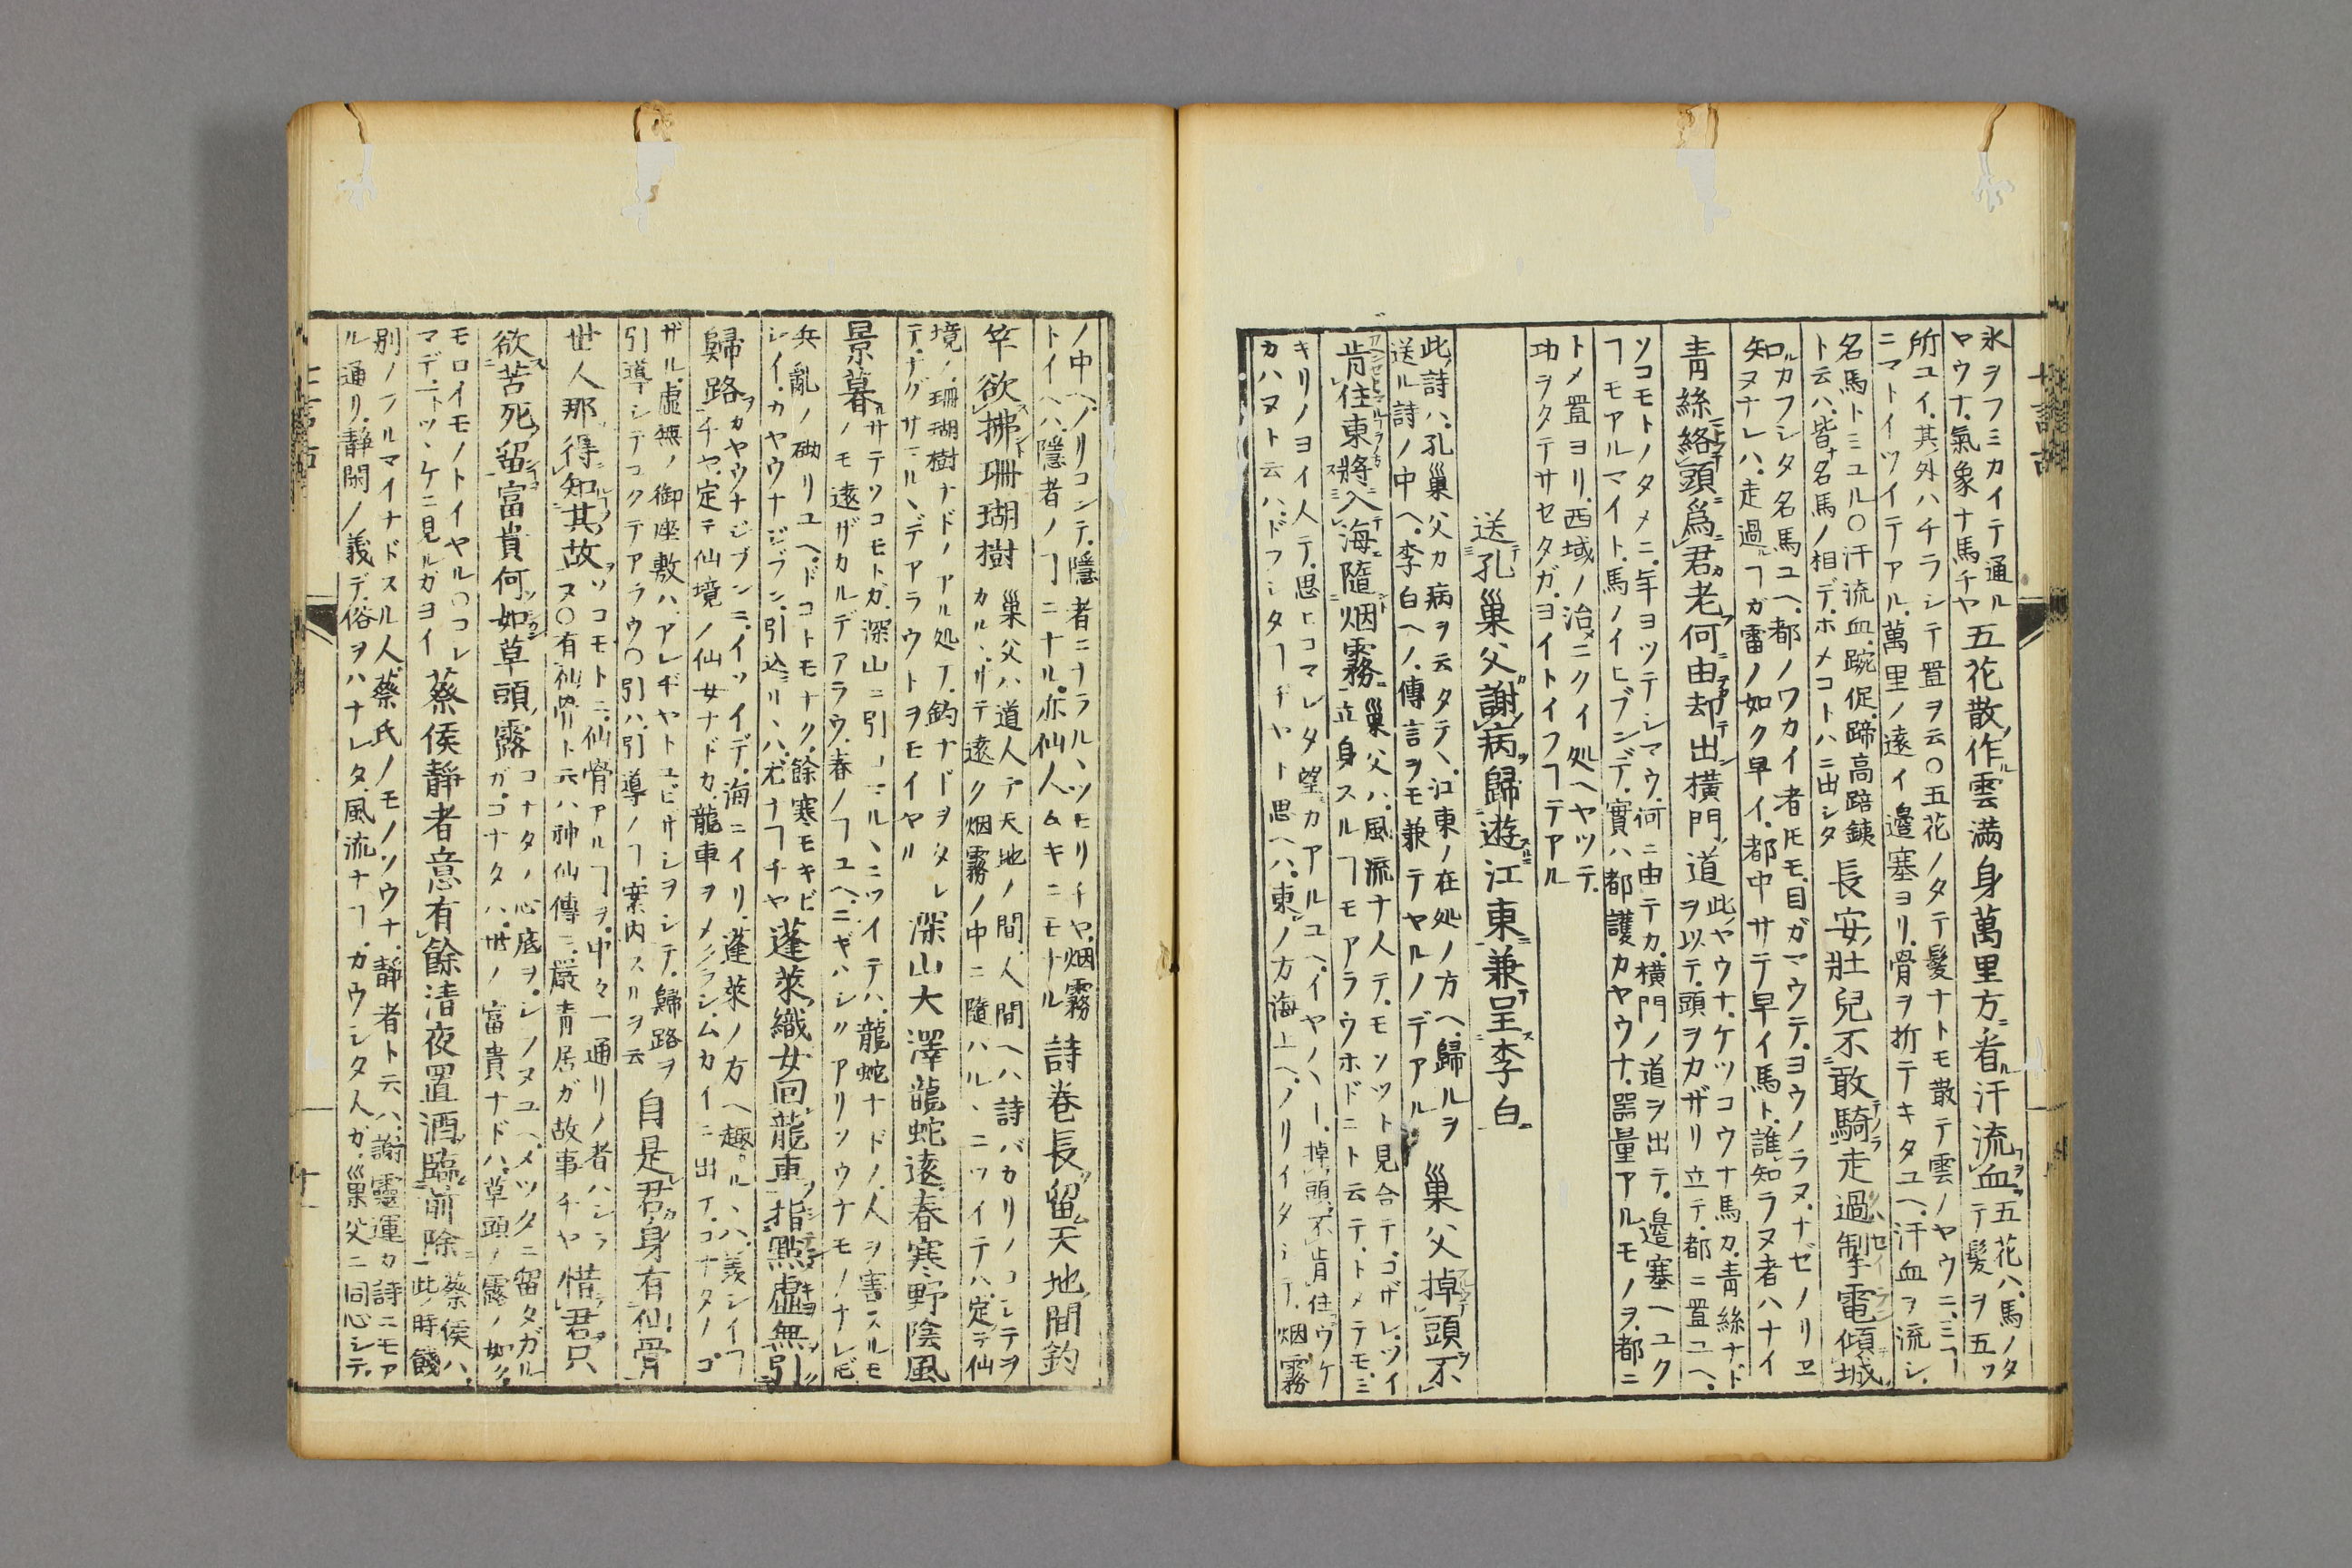 氷ヲフミカイテ通ル
ロウナ氣象ナ馬チヤ
五花散作雲滿身萬里方看汗流血
五花ハ馬ノタ
テ髮ヲ五ツ
所ユイ其外ハチラシテ置ヲ云○五花ノタテ髮ナトモ散テ雲ノヤウニミヿ
ニマトイツイテアル萬里ノ遠イ邊塞ヨリ骨ヲ折テキタユヘ汗血ヲ流シ
名馬トミユル○汗流血踠促蹄高踣鐵
ト云ハ皆名馬ノ相デホメコトハニ出シタ
長安壯兒不敢騎走過掣電傾城
知ルカフシタ名馬ユヘ都ノワカイ者𪜈モ目ガマウテヨウノラヌナゼノリヱ
知ヌナレハ走過ヿガ雷ノ如ク早イ都中サテ早イ馬ト誰知ラヌ者ハナイ
青絲絡頭爲君老何由却出橫門道
此ヤウナケツコウナ馬カ青絲ナド
ヲ以テ頭ヲカザリ立テ都ニ置ユヘ
ソコモトノタメニ年ヨツテシマウ何ニ由テカ橫門ノ道ヲ出テ邊塞ヘユク
ヿモアルマイト馬ノイヒブンデ實ハ都護カヤウナ器量アルモノヲ都ニ
トメ置ヨリ西域ノ治ニクイ処ヘヤツテ
功ヲタテサセタガヨイトイフヿテアル
送孔巢父謝病歸遊江東兼呈李白
此詩ハ孔巢父カ病ヲ云タテヽ江東ノ在処ノ方ヘ歸ルヲ
送ル詩ノ中ヘ李白ヘノ傳言ヲモ兼テヤルノデアル
巢父掉頭不
肯住東將入海隨烟霧
巢父ハ風流ナ人テモンツト見合テゴザレツイ
立身スルヿモアラウホドニト云テトメテモミ
キリノヨイ人テ思ヒコマレタ望カアルユヘイヤノヽー掉頭不肯住ウケ
カハヌト云ハドフシタヿヂヤト思ヘハ東ノ方海上ヘノリイタシテ烟霧
ノ中ヘノリコンテ隱者ニナラルヽツモリチヤ烟霧
トイヘハ隱者ノヿニナル亦仙人ムキニモナル
詩巻長留天地間釣
竿欲拂珊瑚樹
巢父ハ道人デ天地ノ間人間ヘハ詩バカリノコシテヲ
カルヽサテ遠ク烟霧ノ中ニ隨ハルヽニツイテハ定テ仙
境ノ珊瑚樹ナドノアル処デ釣ナドヲタレ
テナグサマルヽデアラウトヲモイヤル
深山大澤龍蛇遠春寒野陰風
景暮
サテソコモトガ深山ニ引コマルヽニツイテハ龍蛇ナドノ人ヲ害スルモ
ノモ遠ザカルデアラウ春ノヿユヘニギハシクアリソウナモノナレ𪜈
兵亂ノ砌リユヘドコトモナク餘寒モキビ
シイカヤウナジブン引込リヽハ尤ナヿチヤ
蓬萊織女回龍車指點虛無引
歸路
カヤウナジブンニイソイデ海ニイリ蓬萊ノ方ヘ趣ルヽハ羨シイヿ
チヤ定テ仙境ノ仙女ナドカ龍車ヲメクラシムカイニ出テコナタノゴ
ザル虛無ノ御座敷ハアレヂヤトユビサシヲシテ歸路ヲ
引導シテコクテアラウ○引ハ引導ノヿ案内スルヲ云
自是君身有仙骨
世人那得知其故
ソコモトニ仙骨アルヿヲ中々一通リノ者ハシラ
ヌ○有仙骨ト云ハ神仙傳ニ嚴青居ガ故事チヤ
惜君只
欲苦死留富貴何如草頭露
コナタノ心底ヲシノヌユヘメツタニ留タガル
ガコナタハ世ノ富貴ナドハ草頭ノ露ノ如ク
モロイモノトイヤル○コレ
マデニトツヽケニ見ルガヨイ
蔡侯靜者意有餘清夜置酒臨前除
蔡侯ハ
此ノ時餞
別ノフルマイナドスル人蔡氏ノモノソウナ靜者ト云ハ謝靈運カ詩ニモア
ル通リ靜閑ノ義デ俗ヲハナレタ風流ナヿカウシタ人カ巢父ニ同心シテ